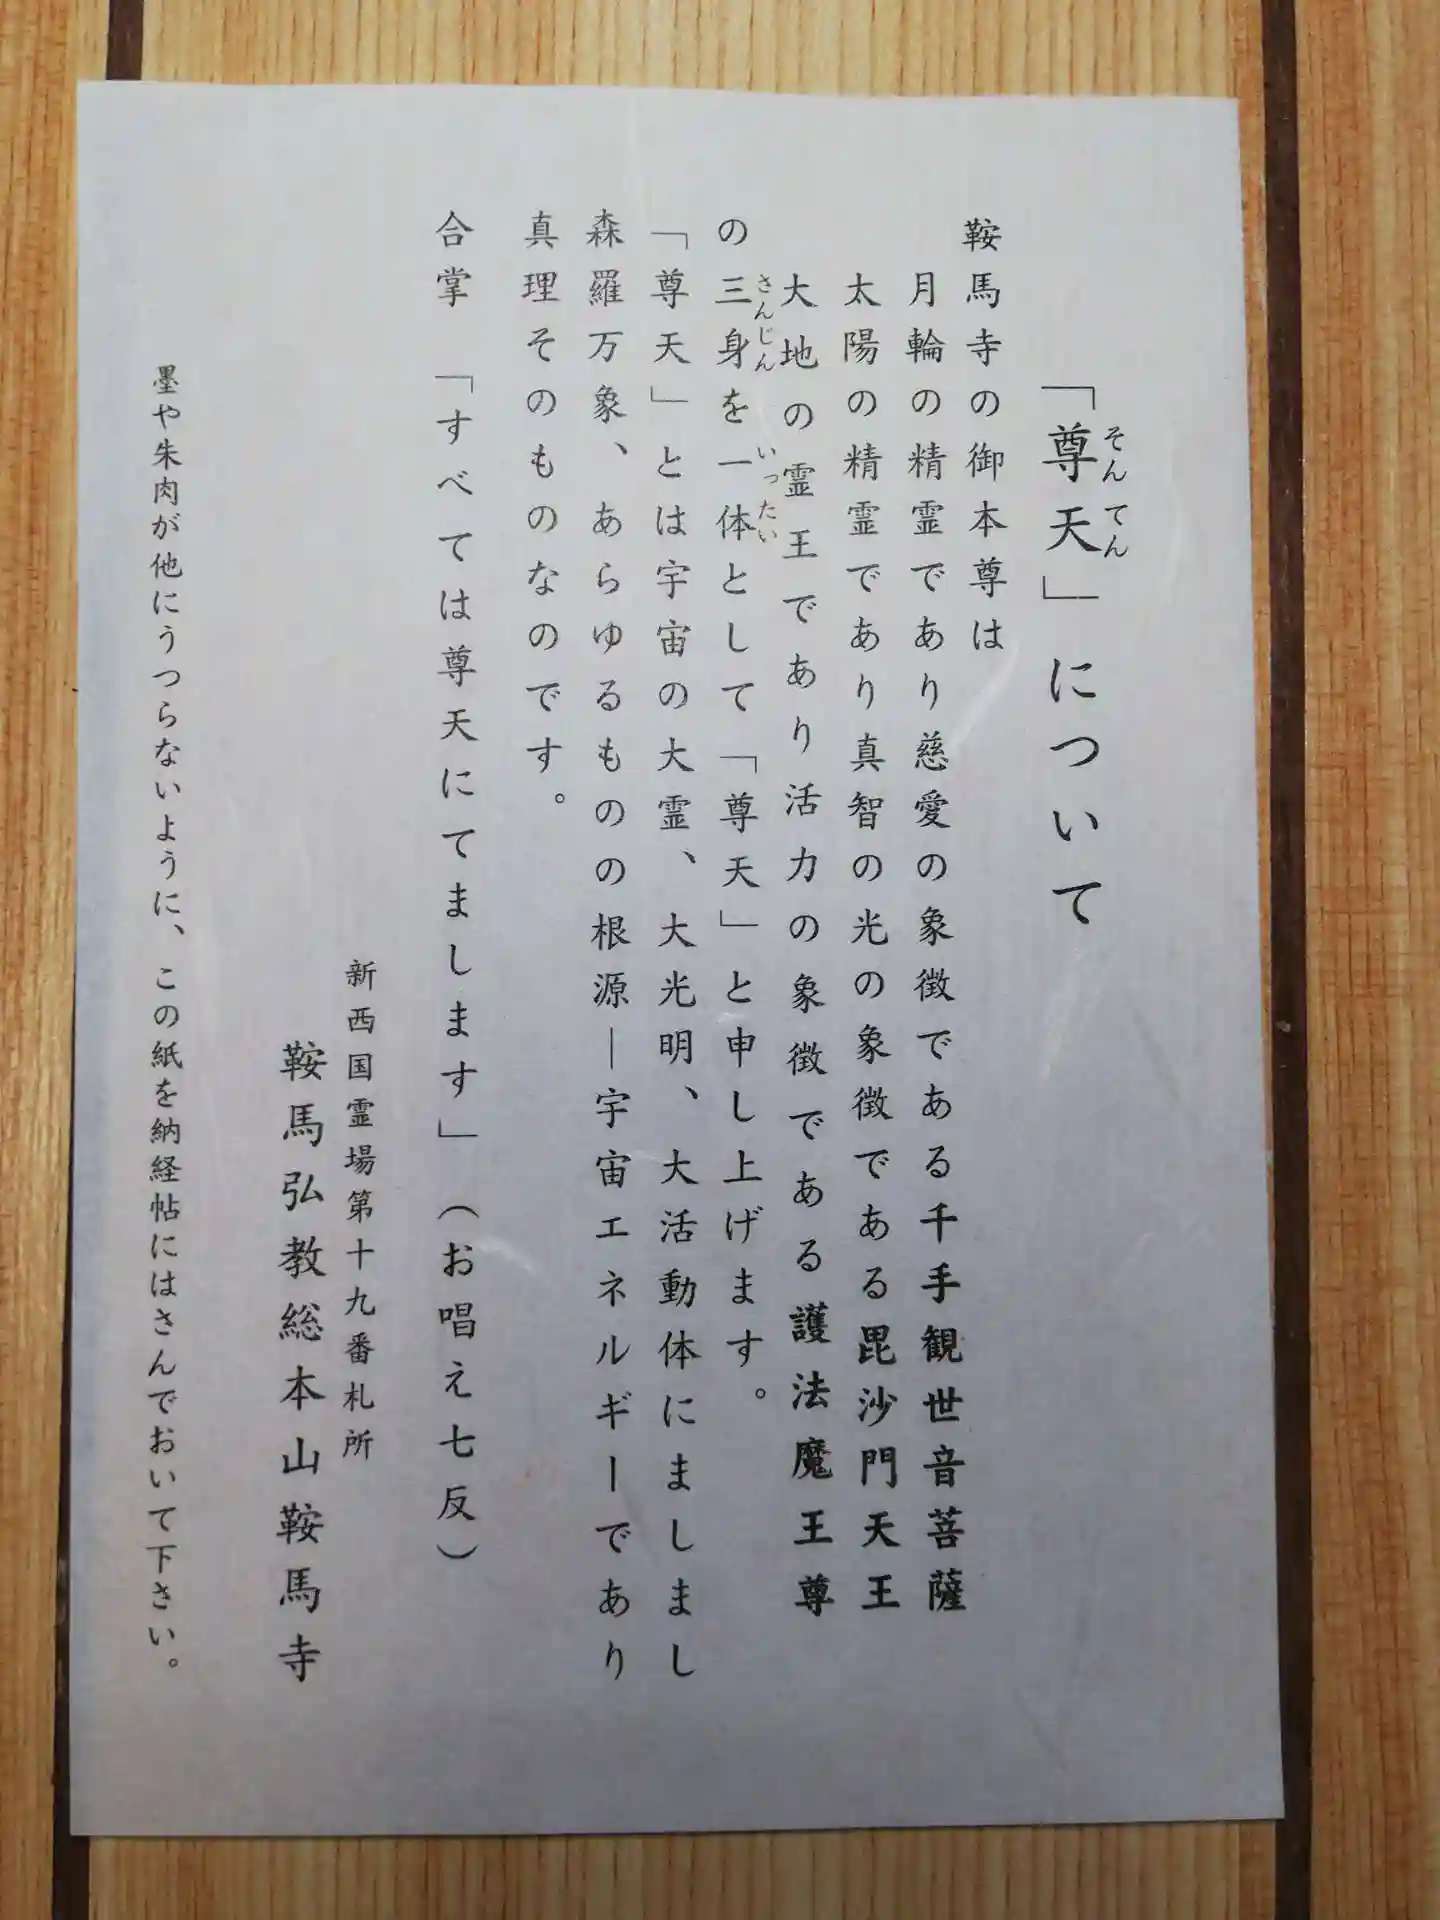 「尊天」について
そんてん
鞍馬寺の御本尊は
月輪の精霊であり慈愛の象徴である千手観世音菩薩
太陽の精霊であり真智の光の象徴である毘沙門天王
大地の霊王であり活力の象徴である護法魔王尊
さんじん いったい
の三身を一体として「尊天」と申し上げます。
「尊天」とは宇宙の大霊、大光明、大活動体にましまし
森羅万象、あらゆるものの根源―宇宙エネルギーであり
真理そのものなのです。
合掌 「すべては尊天にてまします」（お唱え七反）
新西国霊場第十九番札所
鞍馬弘教総本山鞍馬寺
墨や朱肉が他にうつらないように、この紙を納経帖にはさんでおいて下さい。